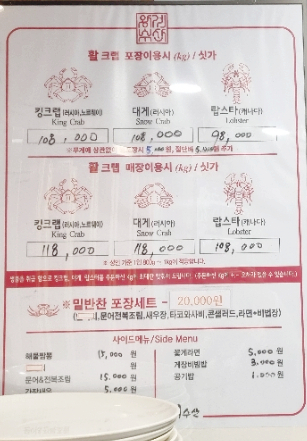 활 크랩 포장이용시 (kg) / 싯가
킹크랩(러시아,노르웨이) 대게(러시아) 랍스타(캐나다)
King Crab Snow Crab Lobster
108,000 108,000 98,000
활 크랩 매장이용시 (kg) / 싯가
킹크랩(러시아,노르웨이) 대게(러시아) 랍스타(캐나다)
King Crab Snow Crab Lobster
118,000 118,000 108,000
※밑반찬 포장세트 - 20,000원
문어전복조림,새우장,타코와사비,콘샐러드,라면+비법장)
사이드메뉴/Side Menu
해물짬뽕 15,000 원 꽃게라면 5,000 원
게장비빔밥 3,000 원
문어&전복조림 15,000 원 공기밥 1,000 원
간장새우 5,000 원
수산